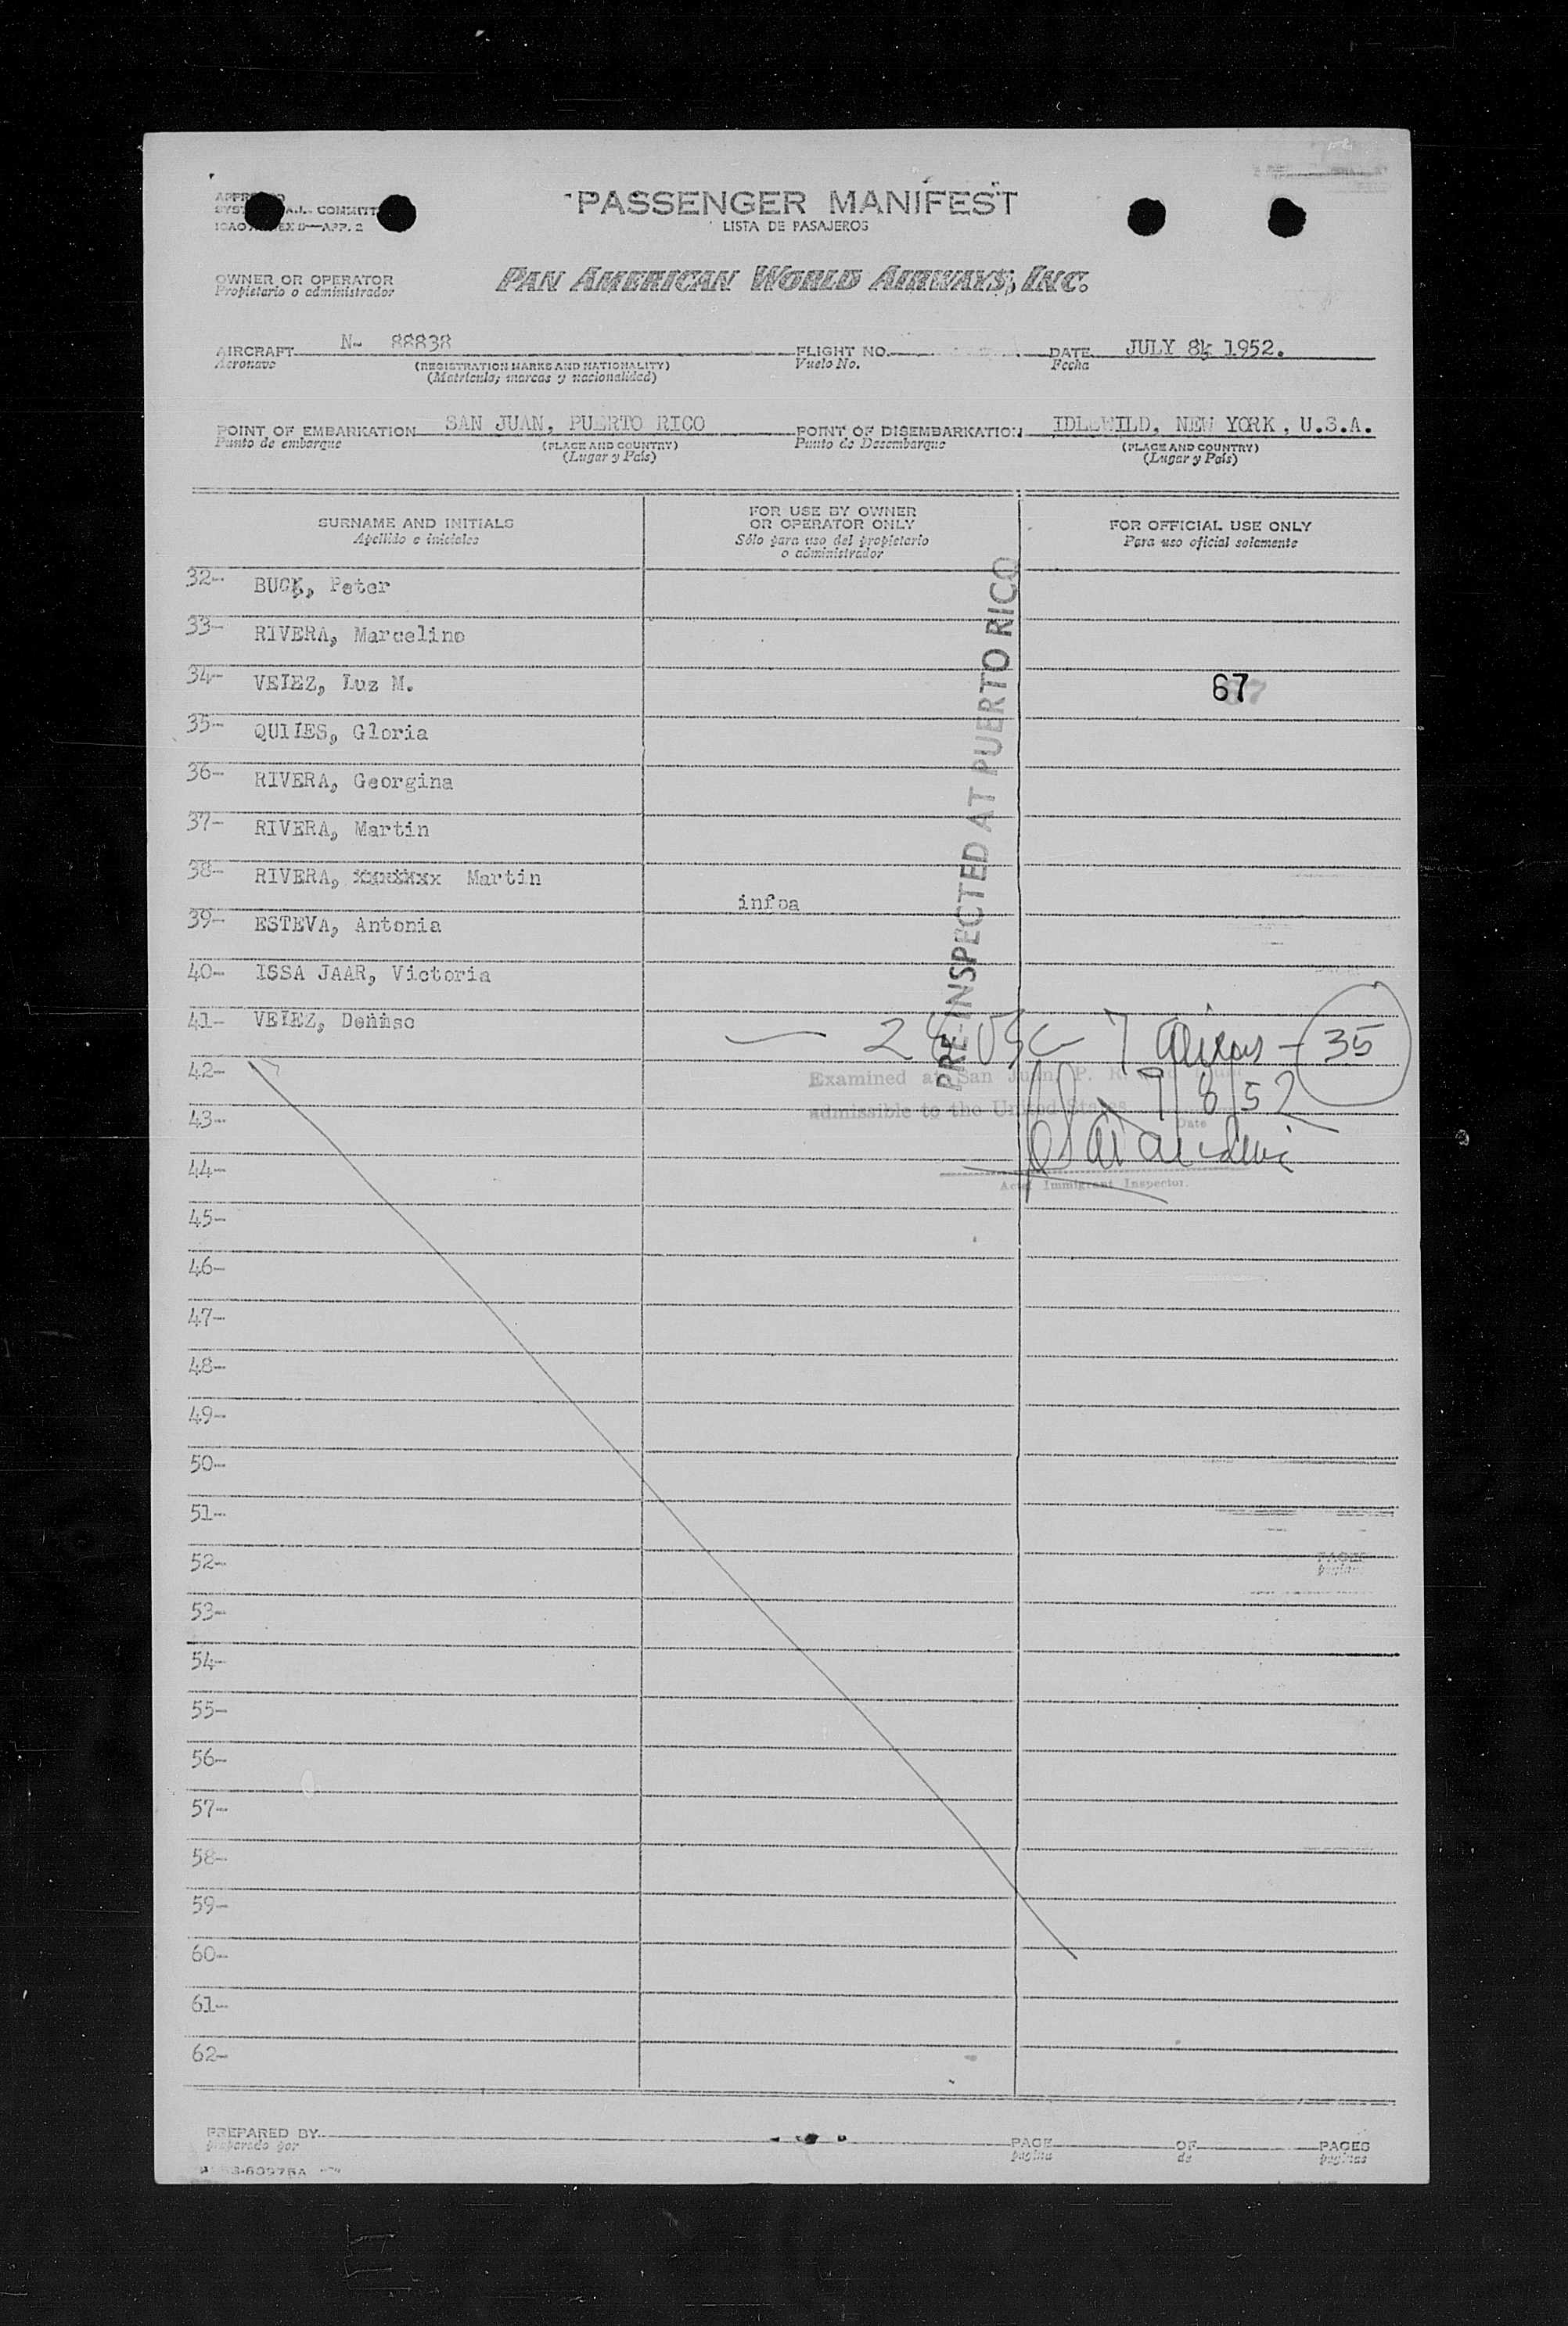 PASSENGER MANIFEST
LISTA DE PASAJEROS
OWNER OR OPERATOR
Propietario o administrador
PAN AMERICAN WORLD AIRWAYS, INC.
AIRCRAFT N- 88838 FLIGHT NO. DATE JULY 8, 1952.
Aeronave (REGISTRATION MARKS AND NATIONALITY) Vuelo No. Fecha
(Matrícula; marcas y nacionalidad)
POINT OF EMBARKATION SAN JUAN, PUERTO RICO POINT OF DISEMBARKATION IDLEWILD, NEW YORK, U.S.A.
Punto de embarque (PLACE AND COUNTRY) Punto de Desembarque (PLACE AND COUNTRY)
(Lugar y País) (Lugar y País)
SURNAME AND INITIALS
Apellido e iniciales
FOR USE BY OWNER
OR OPERATOR ONLY
Sólo para uso del propietario
o administrador
FOR OFFICIAL USE ONLY
Para uso oficial solamente
32- BUCK, Peter
33- RIVERA, Marcelino
34- VELEZ, Luz M.
67
35- QUILES, Gloria
36- RIVERA, Georgina
37- RIVERA, Martin
38- RIVERA, Martin
infoa
39- ESTEVA, Antonia
40- ISSA JAAR, Victoria
41- VELEZ, Dennso
PRE-INSPECTED AT PUERTO RICO
28 USC 7 aliens - 35
42-
Examined at San Juan, P. R.
7/8/52
43-
admissible to the United States
Date
44-
Immigrant Inspector.
45-
46-
47-
48-
49-
50-
51-
52-
53-
54-
55-
56-
57-
58-
59-
60-
61-
62-
PREPARED BY PAGE OF PAGES
preparado por página de páginas